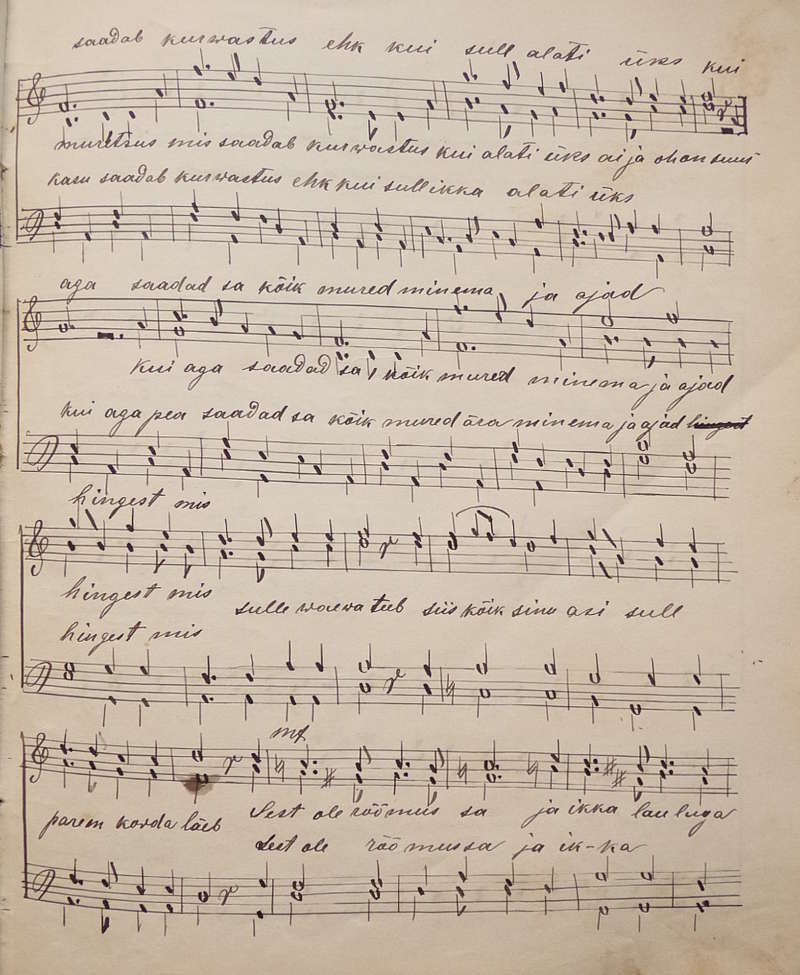 saadab kurwastus ehk kui sull alati üks kui
muretsus mis saadab kurwastus kui alati üks ai ja oh on suur
kasu saadab kurwastus ehk kui sull ikka alati üks
aga saadad sa kõik mured minema ja ajad
kui aga saadad sa kõik mured minema ja ajad
kui aga pea saadad sa kõik mured ära minema ja ajad hingest
hingest mis
hingest mis
sulle waewa teeb siis kõik sinu asi sull
hingest mis
mf
parem korda läeb Sest ole rõõmus sa ja ikka lauluga
Sest ole rõõmus sa ja ik-ka